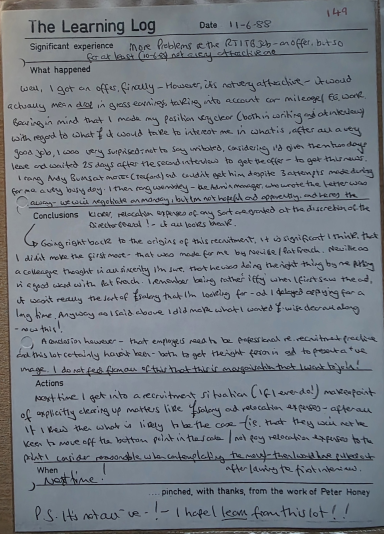 149
The Learning Log Date 11-6-88
Significant experience More Problems re the RTITB Job - an offer, but so
far at least (10-6-88) not a very attractive one
What happened
Well, I got an offer, finally - However, it's not very attractive - it would
actually mean drop in gross earnings, taking into account car mileage/ EG work
Bearing in mind that I made my position very clear (both in writing and at interview)
with regard to what £ it would take to interest me in what is, after all a very
good job, I was very surprised; not to say irritated, considering I'd given them two days
leave and waited 25 days after the second interview to get the offer - to get this news.
I rang Andy at and couldn't get him, despite 3 attempts made during
for me a very busy day. I then rang - the Admin manager, who wrote the letter was
away - we will negotiate on money, but I'm not hopeful
Conclusions relocation expenses of any sort are granted at the discretion of the
Director General! - it all looks bleak.
Going right back to the origins of this recruitment, it is significant I think, that
I didn't make the first move - that was made for me by Neville/Pat Frach. Neville as
a colleague thought in all sincerity I'm sure, that he was doing the right thing by me putting
in a good word with Pat Frach. I remember being rather iffy when I first saw the ad,
it wasn't really the sort of £ salary that I'm looking for - and I delayed applying for a
long time. Anyway as I said above I did make what I wanted £-wise clear along
- now this!
A conclusion however - that employers need to be professional re. recruitment practice
and this lot certainly haven't been - both to get the right person in and to present a +ve
image. I do not feel from all of this that this is an organisation that I want to join!
Actions
Next time I get into a recruitment situation (if I ever do!) make a point
of explicitly clearing up matters like £ salary and relocation expenses - after all
if I knew then what is likely to be the case - (ie. that they would not be
keen to move off the bottom point in the scale / not pay relocation expenses to the
point I consider reasonable when contemplating the move - then I would have pulled out
When after leaving the first interview.
Next time!
....pinched, with thanks, from the work of Peter Honey
P.S. It's not all -ve - ! - I hope I learn from this lot!!